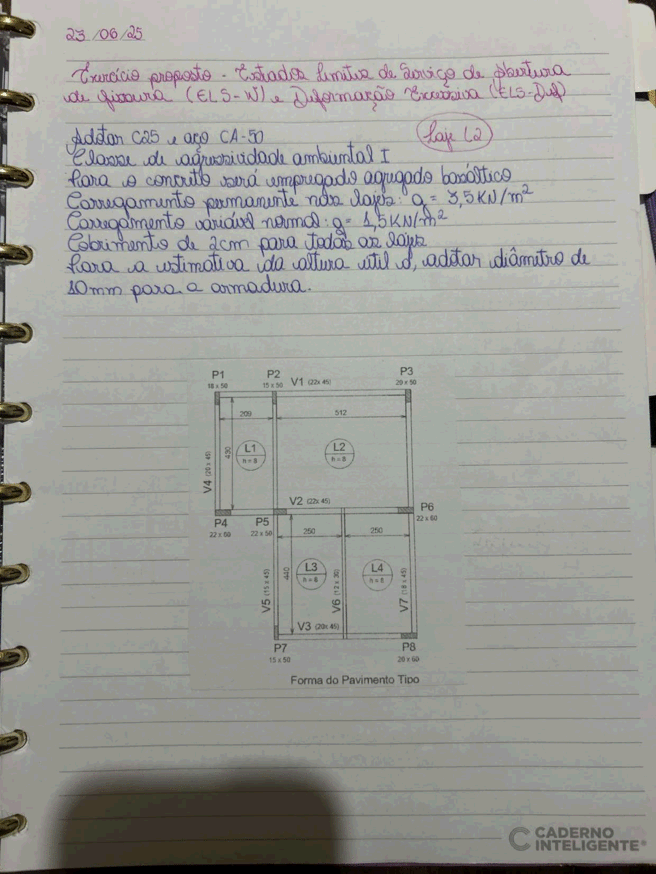 23/06/25
Exercício proposto - Estados limites de Serviço de Abertura
de fissura (ELS-W) e Deformação Excessiva (ELS-Def)
Adotar C25 e aço CA-50
Laje L2
Classe de agressividade ambiental I
Para o concreto será empregado agregado basáltico
Carregamento permanente nas lajes: g = 3,5KN/m²
Carregamento variável normal: q = 1,5KN/m²
Cobrimento de 2cm para todas as lajes
Para a estimativa da altura útil d, adotar diâmetro de
10mm para a armadura.
P1 P2 V1 (22x 45) P3
18 x 50 15 x 50 20 x 50
209 512
V4 (20 x 45) 430 L1 L2
h = 8 h = 8
V2 (22x 45) P6
P4 P5 22 x 60
22 x 60 22 x 50
250 250
V5 (11 x 45) 440 L3 V6 (12 x 30) L4 V7 (18 x 45)
h = 8 h = 8
V3 (20x 45)
P7 P8
15 x 50 20 x 60
Forma do Pavimento Tipo
CADERNO
INTELIGENTE